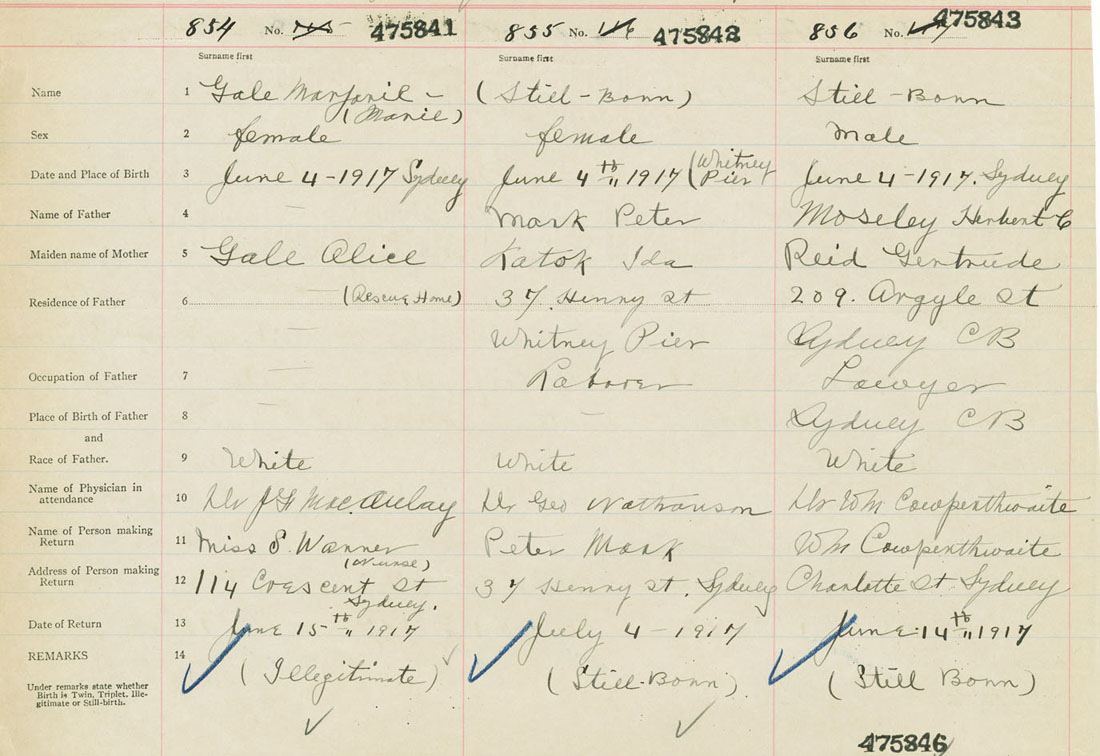 854 No. 475841 855 No. 116 475842 856 No. 475843
Surname first Surname first Surname first
Name 1 Gale Marjorie - (Still-Born) Still-Born
(Marie)
Sex 2 female female Male
Date and Place of Birth 3 June 4-1917 Sydney June 4th " 1917 (Whitney Pier June 4-1917. Sydney
Name of Father 4 — Mark Peter Moseley Herbert C
Maiden name of Mother 5 Gale Alice Katok Ida Reid Gertrude
Residence of Father 6 (Rescue Home) 37 Henry St 209. Argyle St
— Whitney Pier Sydney CB
Occupation of Father 7 — Laborer Lawyer
Place of Birth of Father 8 — — Sydney CB
and
Race of Father. 9 White White White
Name of Physician in
attendance 10 Dr J G MacAulay Dr Geo Nathanson Dr Wm Cowperthwaite
Name of Person making
Return 11 Miss S. Wanner Peter Mark Wm Cowperthwaite
(Nurse)
Address of Person making
Return 12 114 Crescent St 37 Henry St. Sydney Charlotte St Sydney
Sydney.
Date of Return 13 June 15th " 1917 July 4-1917 June 14th " 1917
REMARKS 14 (Illegitimate) (Still-Born) (Still Born)
Under remarks state whether
Birth is Twin, Triplet, Ille-
gitimate or Still-birth.
475846